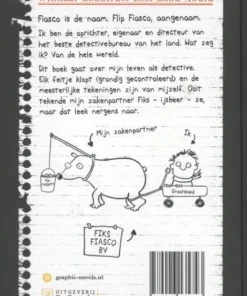 Fiasco is de naam. Flip Fiasco, aangenaam.
Ik ben de oprichter, eigenaar en directeur van
het beste detectivebureau van het land. Wat zeg
ik? Van de hele wereld.
Dit boek gaat over mijn leven als detective.
Elk feitje klopt (grondig gecontroleerd) en de
meesterlijke tekeningen zijn van mijzelf. Ooit
tekende mijn zakenpartner Fiks - ijsbeer - ze,
maar dat leek nergens naar.
Mijn zakenpartner
Ik
Grootheid
FIKS
FIASCO
BV
graphic-novels.nl
UITGEVERIJ